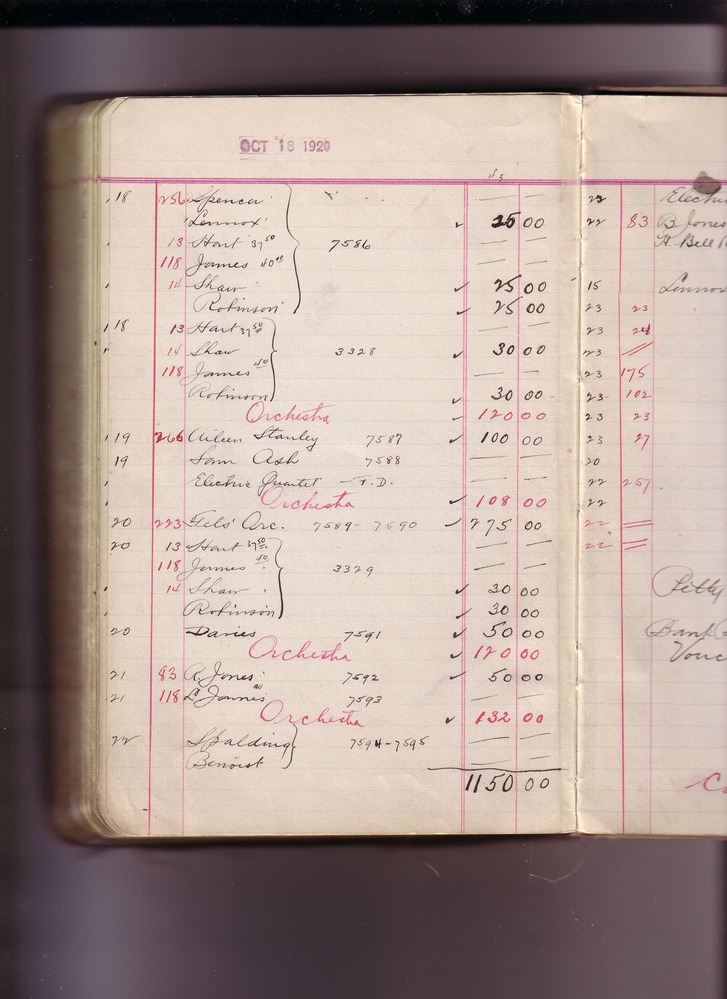 OCT 18 1920
18 256 Spencer — —
Lennox ✓ 25 00
13 Hart 37 50 7586 — —
118 James 40 00 — —
14 Shaw ✓ 25 00
Robinson ✓ 25 00
18 13 Hart 37 50 — —
14 Shaw 3328 ✓ 30 00
118 James 40 — —
Robinson ✓ 30 00
Orchestra ✓ 120 00
19 266 Aileen Stanley 7587 ✓ 100 00
19 Sam Ash 7588
Electric Quartet — T.D.
Orchestra ✓ 108 00
20 223 Fels' Arc. 7589-7590 ✓ 275 00
20 13 Hart 37 50 — —
118 James 40 3329 — —
14 Shaw ✓ 30 00
Robinson ✓ 30 00
20 Davies 7591 ✓ 50 00
Orchestra ✓ 120 00
21 83 A. Jones 7592 ✓ 50 00
21 118 L. James 7593 — —
Orchestra ✓ 132 00
22 Spalding 7594-7595 — —
Benoist — —
1150 00
22
22 83 B Jones
H. Bell
15 Lennox
23 23
23 24
23 //
23 175
23 102
23 23
23 27
20
22 257
22
22 //
22 //
Petty
Bank
Vouc